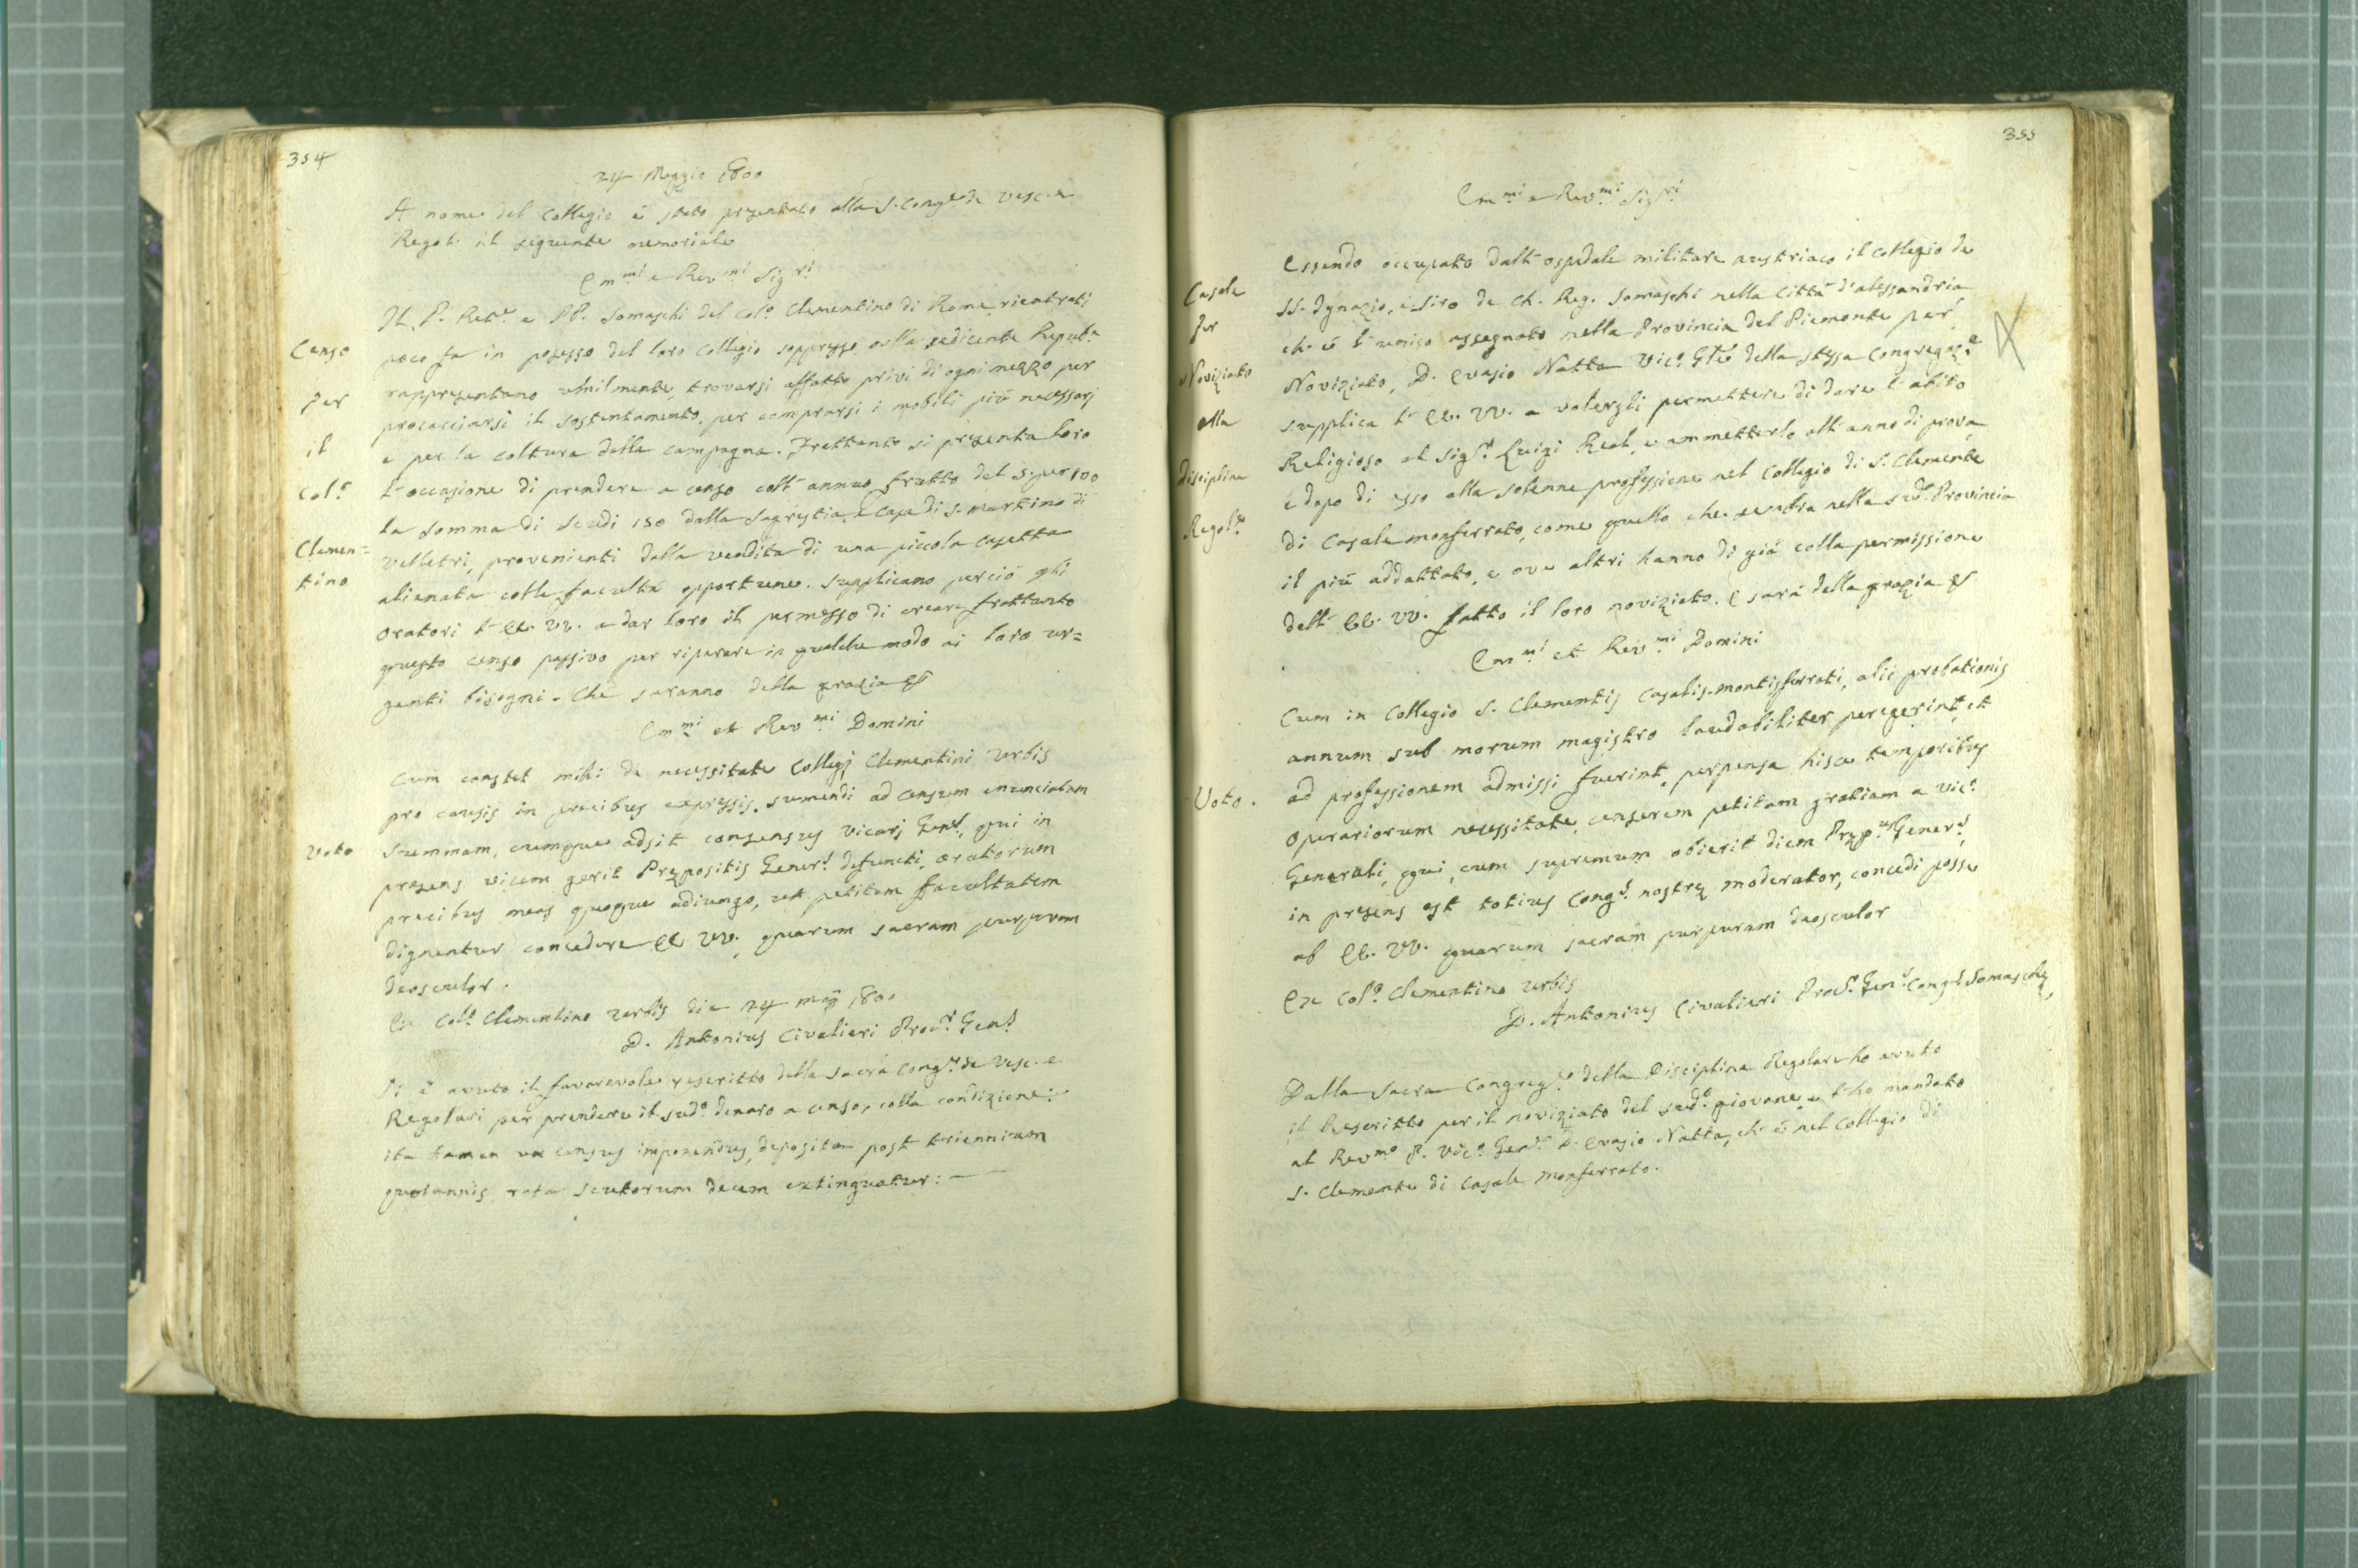 354
24 Maggio 1800
A nome del Collegio è stato presentato alla S. Cong.e de Vesc. e
Regol. il seguente memoriale
Em.mi e Rev.mi Sig.ri
Censo
Per
il
Col.o
Clemen=
tino
Il P. Ret.e e PP. Somaschi del Col.o Clementino di Roma rientrati
poco fa in possesso del loro Collegio soppresso dalla sedicente Repub.a
rappresentano umilmente trovarsi affatto privi di ogni mezzo per
procacciarsi il sostentamento, per comprarsi i mobili più necessarj
e per la coltura della campagna. Frattanto si presenta loro
l'occasione di prendere a censo coll'annuo frutto del 5. per 100
la somma di Scudi 150 dalla Sagrestia, e Casa di S. Martino di
Velletri, provenienti dalla vendita di una piccola casetta
alienata colle facultà opportune. Supplicano perciò gli
Oratori l'EE. VV. a dar loro il permesso di creare frattanto
questo censo passivo per riparare in qualche modo ai loro ur=
genti bisogni. Che saranno della grazia &
Em.mi et Rev.mi Domini
Voto
Cum constet mihi de necessitate Collegj Clementini Urbis
pro causis in precibus expressis, sumendi ad censum enunciatam
summam, cumque adsit consensus Vicarj Gen.s, qui in
presens vicem gerit Prepositis Gener.s defuncti, oratorum
precibus meas quoque adiungo, ut petitam facultatem
dignentur concedere EE VV., quarum sacram purpuram
deosculor.
Ex Col.o Clementino Urbis die 24 maj 1800
D. Antonius Civalieri Proc.r Gen.s
Si è avuto il favorevole rescritto della Sacra Cong.ne de Vesc. e
Regolari per prendere il sud.o denaro a censo, colla condizione:
ita tamen ut census imponendus, deposita post triennium
quotannis rata scutorum decem extinguatur: —
355
Em.mi e Rev.mi Sig.ri
Casale
Per
Noviziato
alla
Disciplina
Regol.e
Essendo occupato dall'ospedale militare austriaco il Collegio de
SS. Ignazio, e Siro de Ch. Reg. Somaschi nella Città d'Alessandria
ch'è l'unico assegnato nella Provincia del Piemonte per
Noviziato, D. Evasio Natta Vic.o Gñle della stessa Congregaz.e
supplica l'EE. VV. a volergli permettere di dare l'abito
Religioso al Sig.r Luigi Reat, e ammetterlo all'anno di prova
e dopo di esso alla solenne professione nel Collegio di S. Clemente
di Casale monferrato, come quello che sembra nella sud.a Provincia
il più addattato, e ove altri hanno di già colla permissione
dell'EE. VV. fatto il loro noviziato. E sarà della grazia &
Em.mi et Rev.mi Domini
Voto.
Cum in Collegio S. Clementis Casalis-montisferrati, alii probationis
annum sub morum magistro laudabiliter peregerint, et
ad professionem admissi fuerint, perpensa hisce temporibus
Operariorum necessitate, censerem petitam gratiam a Vic.o
Generali, qui, cum supremum obierit diem Prep.us Gener.s,
in presens est totius Cong.s nostrę moderator, concedi posse
ab EE. VV. quarum sacram purpuram deosculor
Ex Col.o Clementino Urbis
D. Antonius Civalieri Proc.r Gen.s Cong.s Somaschę
Dalla Sacra Congreg.e della Disciplina Regolare ho avuto
il Rescritto per il noviziato del sud.o giovane, e l'ho mandato
al Rev.mo P. Vic.o Gen.e D. Evasio Natta, ch'è nel Collegio di
S. Clemente di Casale Monferrato.